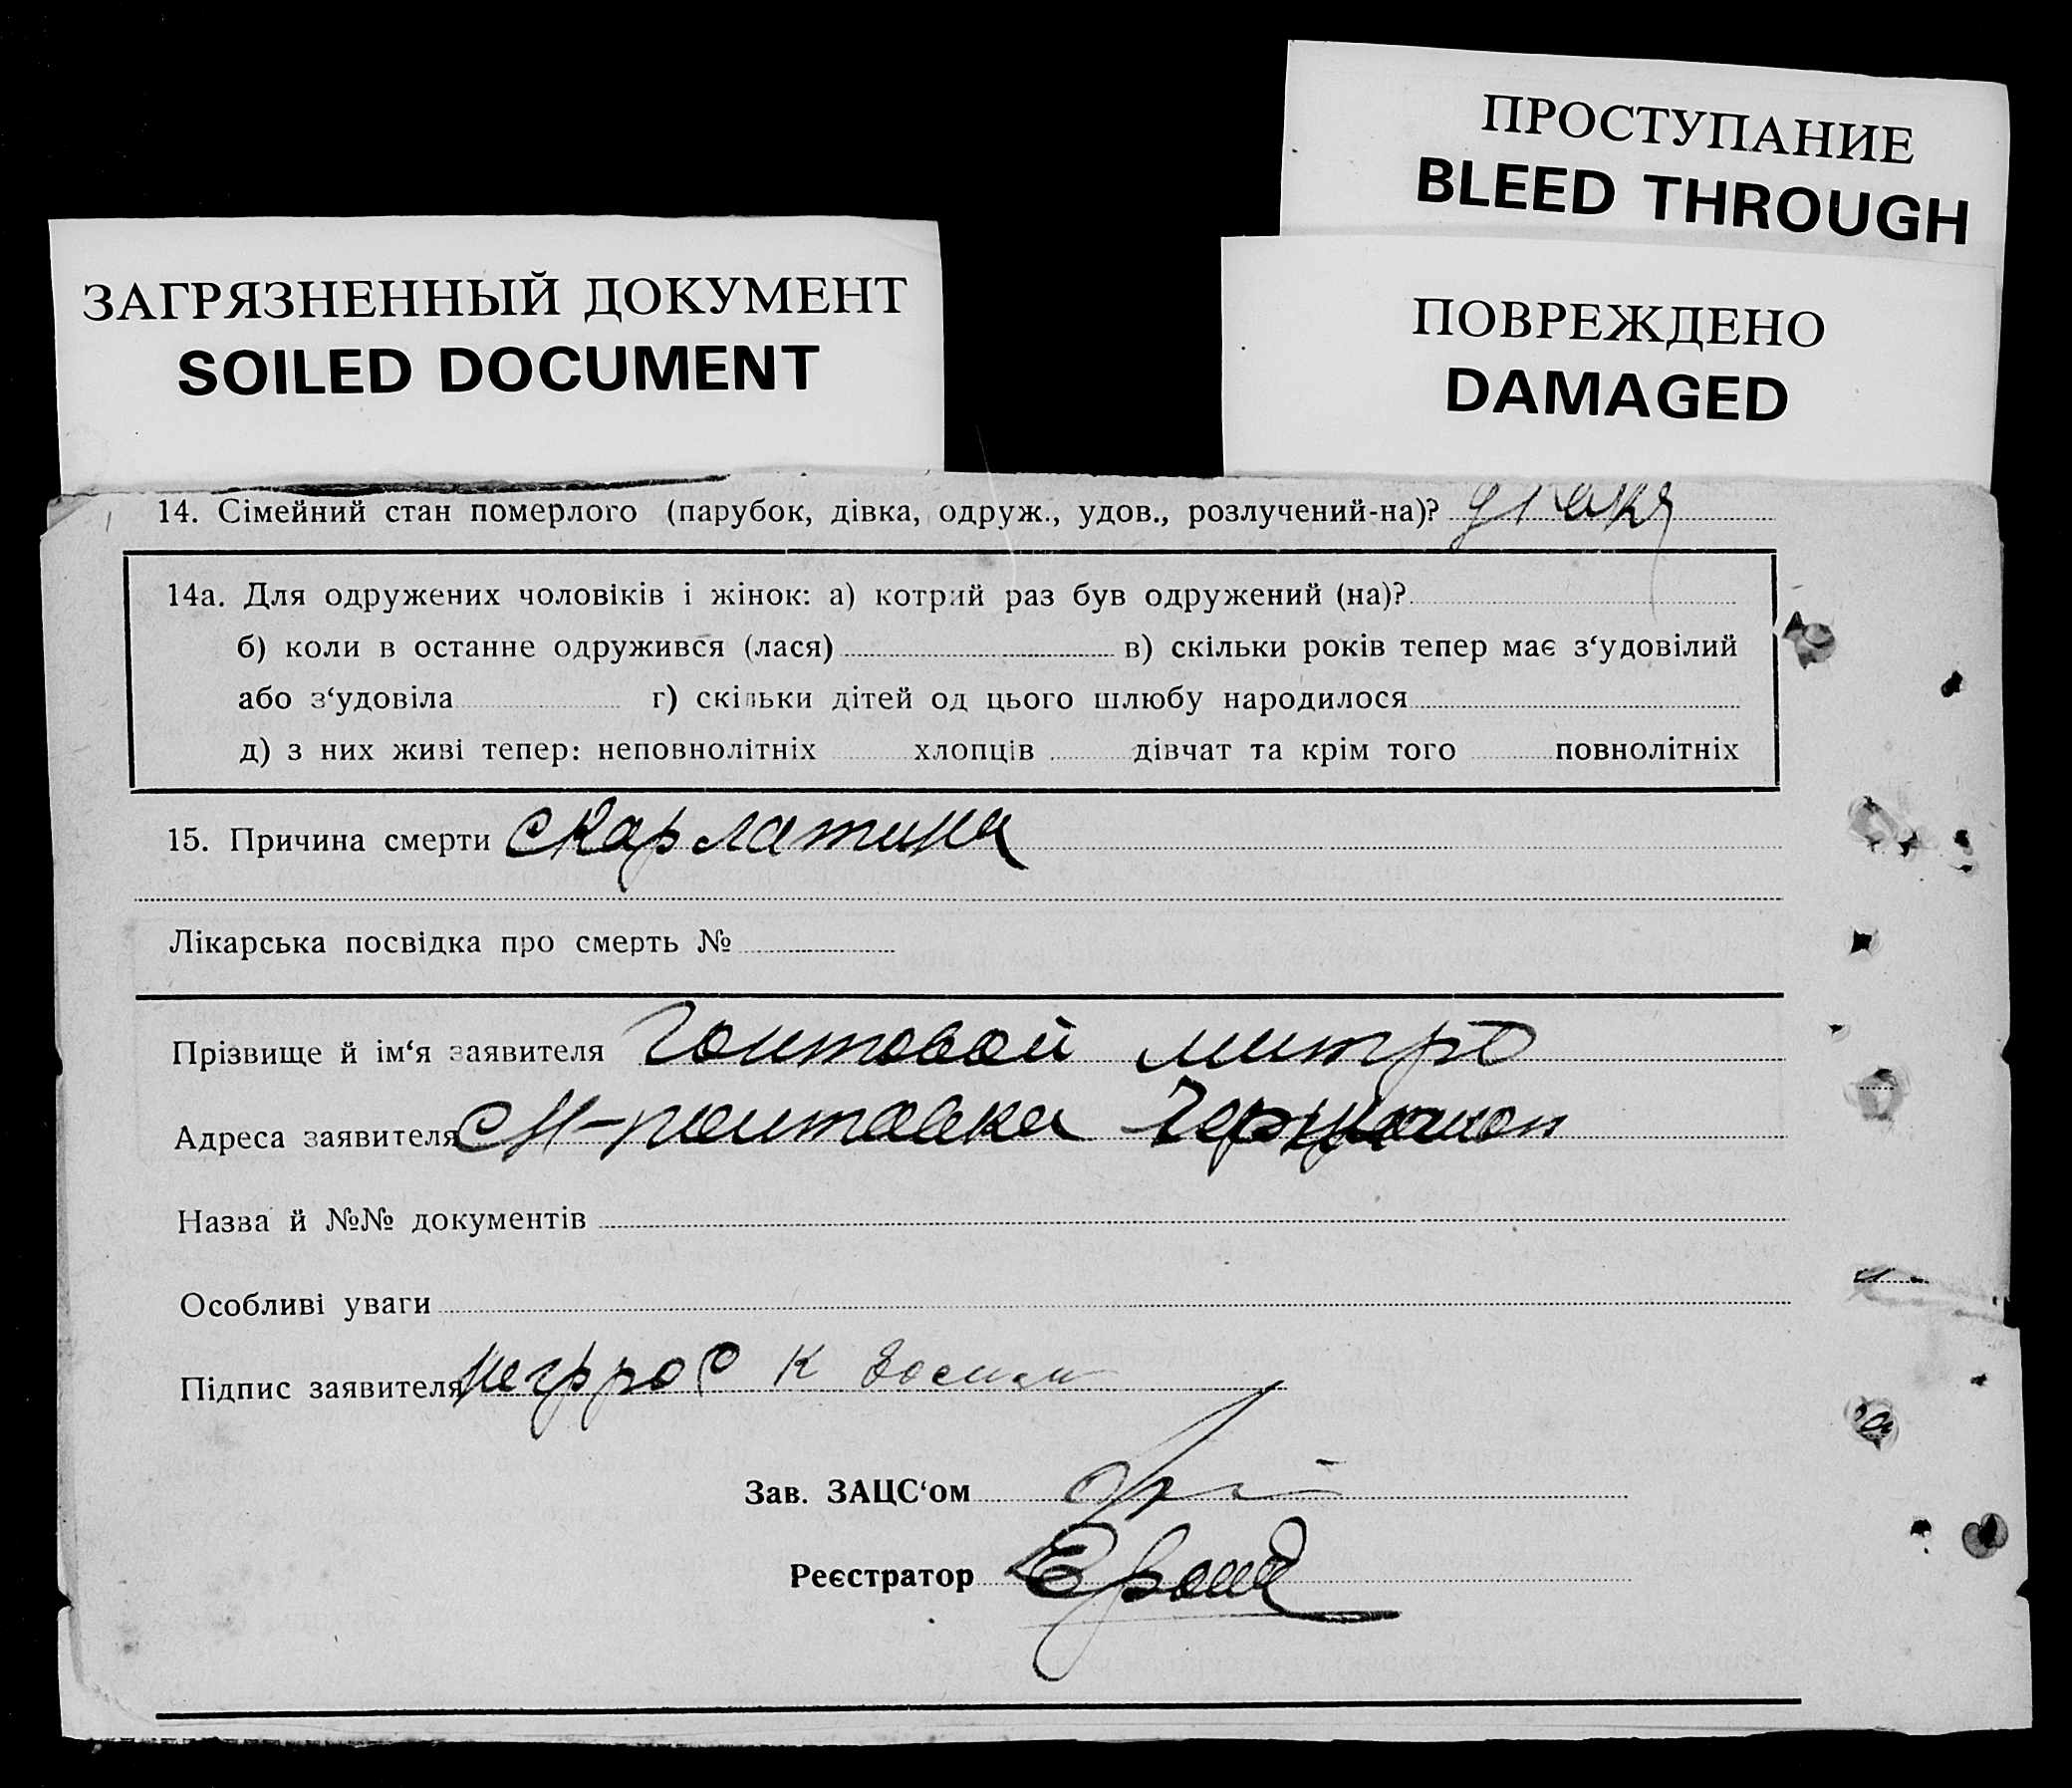 ПРОСТУПАНИЕ
BLEED THROUGH
ЗАГРЯЗНЕННЫЙ ДОКУМЕНТ
SOILED DOCUMENT
ПОВРЕЖДЕНО
DAMAGED
14. Сімейний стан померлого (парубок, дівка, одруж., удов., розлучений-на)?
14а. Для одружених чоловіків і жінок: а) котрий раз був одружений (на)?
б) коли в останне одружився (лася) в) скільки років тепер має з‘удовілий
або з‘удовіла г) скільки дітей од цього шлюбу народилося
д) з них живі тепер: неповнолітніх хлопців дівчат та крім того повнолітніх
15. Причина смерти скарлатина
Лікарська посвідка про смерть №
Прізвище й ім‘я заявителя Гонтовой митро
Адреса заявителя
Назва й №№ документів
Особливі уваги
Підпис заявителя
Зав. ЗАЦС‘ом
Реєстратор